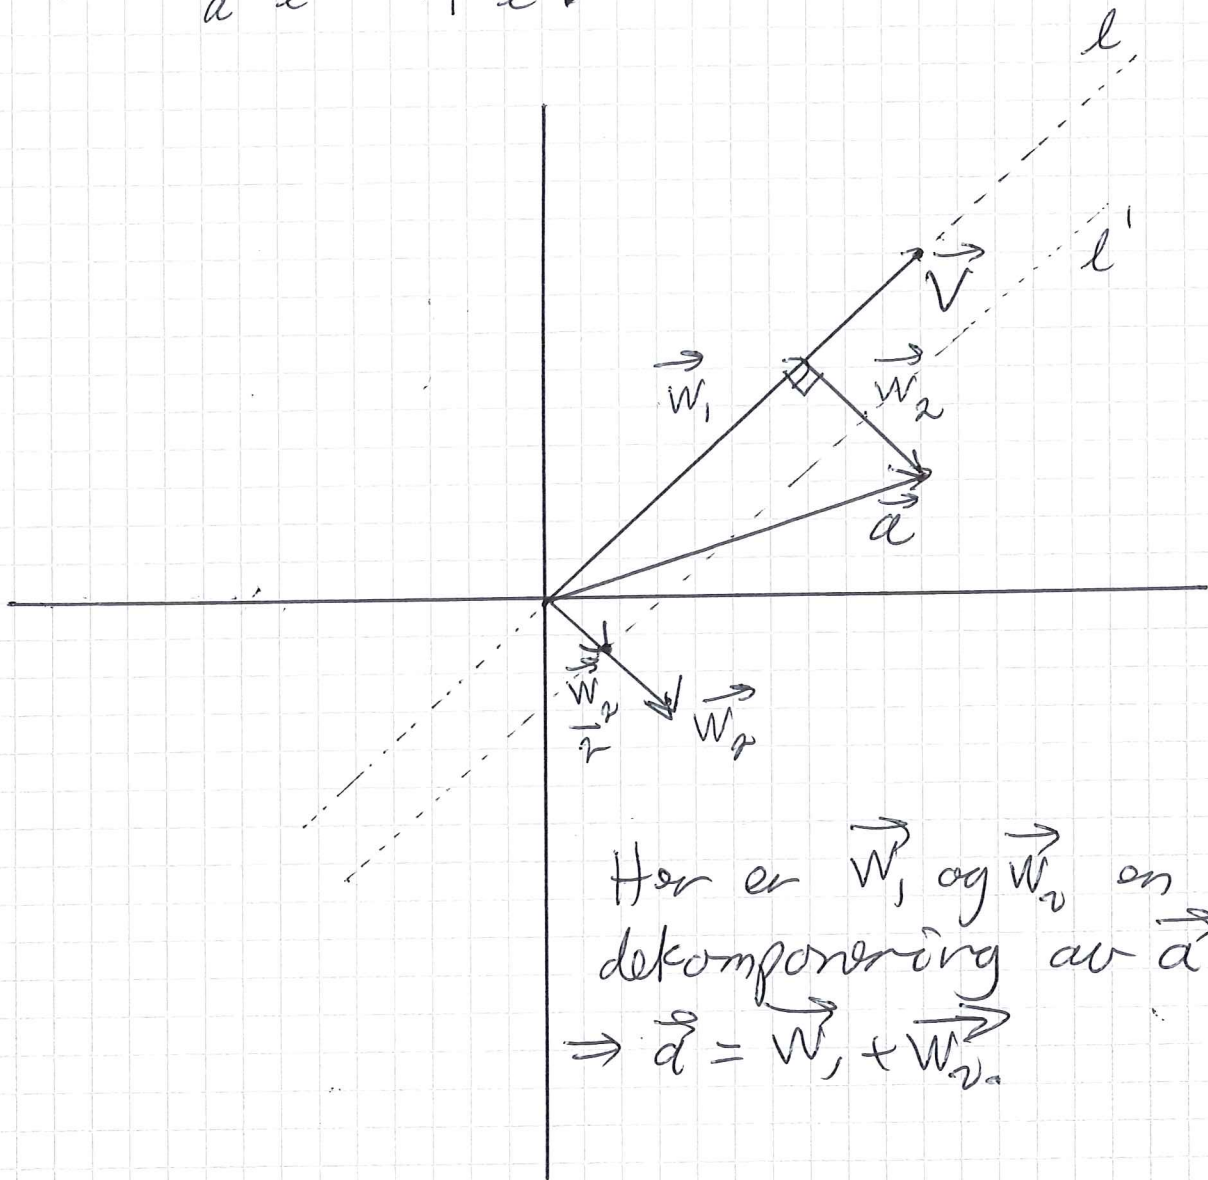 l
l'
V⃗
w⃗₁
w⃗₂
a⃗
w⃗₂/2
w⃗₂
Her er w⃗₁ og w⃗₂ en
dekomponering av a⃗
⇒ a⃗ = w⃗₁ + w⃗₂.